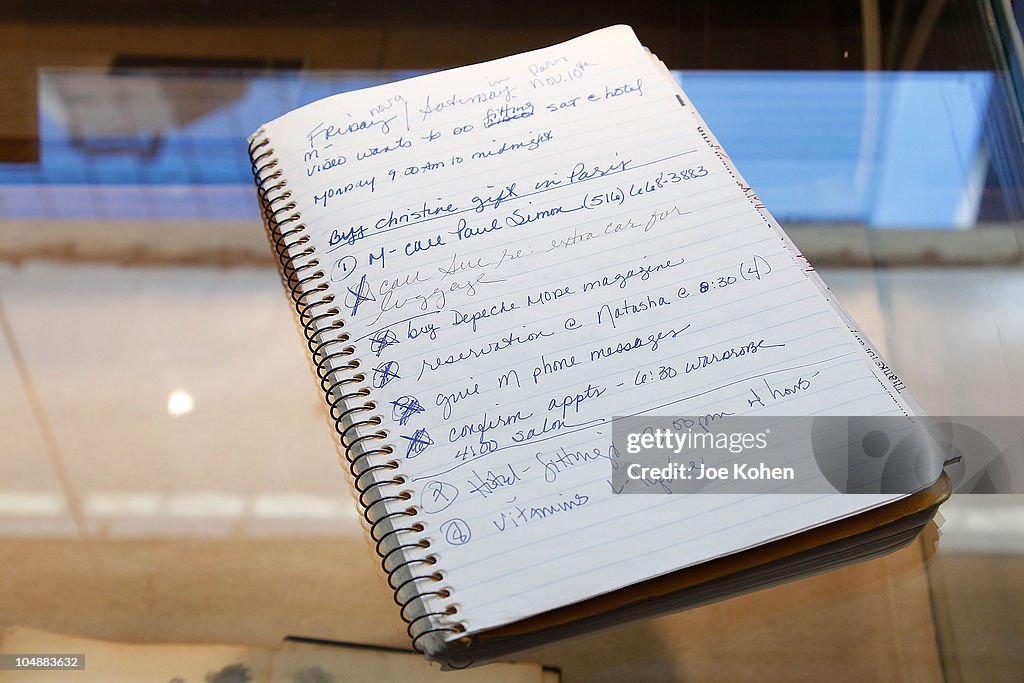 in Paris
Friday nov 9 / Saturday Nov. 10th
M-
video wants to do fitting sat @ hotel
Monday 9:00 Am to midnight
Buy christine gift in Paris
① M- call Paul Simon (516) 668-3883
call Sue re: extra car for
luggage
buy Depeche Mode magazine
reservation @ Natasha @ 8:30 (4)
give M phone messages
confirm appts - 6:30 wardrobe
4:00 salon
② Hotel - fitting :00 pm 4 hours
④ Vitamins
Thanks for
gettyimages®
Credit: Joe Kohen
104883632